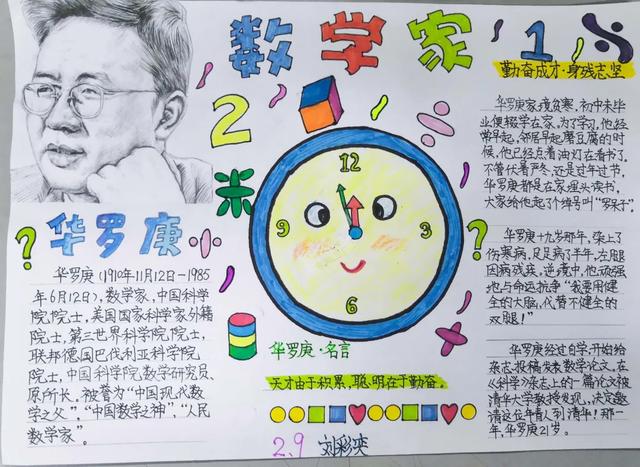 数学家
1
2
勤奋成才·身残志坚
华罗庚家境贫寒,初中未毕
业便辍学在家。为了学习,他经
常早起。邻居早起磨豆腐的时
候,他已经点着油灯在看书了。
不管伏暑严冬,还是过年过节,
华罗庚都是在家埋头读书,
大家给他起了个绰号叫“罗呆子”。
华罗庚十九岁那年,染上了
伤寒病,足足病了半年,左腿
因病残疾。逆境中,他顽强
地与命运抗争“我要用健
全的大脑,代替不健全的
双腿!”
华罗庚经过自学,开始给
杂志投稿发表数学论文。在
《科学》杂志上的一篇论文被
清华大学教授发现,决定邀
请这位年轻人到清华!那一
年,华罗庚21岁。
米
12
3
6
9
?
?
华罗庚
华罗庚(1910年11月12日-1985
年6月12日),数学家,中国科学
院院士,美国国家科学家外籍
院士,第三世界科学院院士,
联邦德国巴伐利亚科学院
院士,中国科学院数学研究员、
原所长,被誉为“中国现代数
学之父”,“中国数学之神”,“人民
数学家”。
华罗庚·名言
天才由于积累,聪明在于勤奋。
2.9 刘彩奕